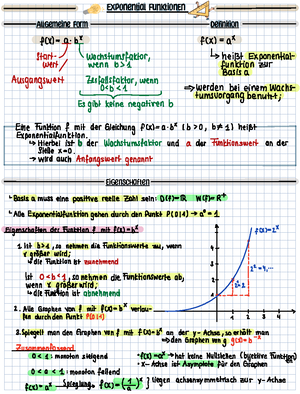 Exponential Funktionen
Allgemeine Form
Definition
f(x)= a · b^x
f(x) = a^x
Start-
wert
Wachstumsfaktor,
wenn b>1
heißt Exponential-
funktion zur
Basis a
Ausgangswert
Zerfallsfaktor, wenn
0<b<1
Es gibt keine negativen b
⇒ werden bei einem Wachs-
tumsvorgang benutzt;
Eine Funktion f mit der Gleichung f(x)= a·b^x (b>0, b≠1) heißt
Exponentialfunktion.
↳ Hierbei ist b der Wachstumsfaktor und a der Funktionswert an der
Stelle x=0.
→ wird auch Anfangswert genannt
Eigenschaften
Basis a muss eine positive reelle Zahl sein: D(f)=ℝ W(f)=ℝ⁺
Alle Exponentialfunktion gehen durch den Punkt P(0|1) → a⁰=1
Eigenschaften der Funktion f mit f(x)=b^x
1. Ist b>1, so nehmen die Funktionswerte zu, wenn
x größer wird;
↳ die Funktion ist zunehmend
Ist 0<b<1, so nehmen die Funktionswerte ab,
wenn x größer wird;
↳ die Funktion ist abnehmend
f(x)=2^x
2. Alle Graphen von f mit f(x)=b^x verlau-
fen durch den Punkt P(0|1)
3. Spiegelt man den Graphen von f mit f(x)=b^x an der y-Achse, so erhält man
⇒ den Graphen von g g(x)=b^-x
Zusammenfassend
0<a<1: monoton steigend
• f(x)=a^x → hat keine Nullstellen (bijektive Funktion)
• x-Achse ist Asymptote für den Graphen
0<a<1: monoton fallend
f(x)=a^x Spieglung f(x)=(1/a)^x } liegen achsensymmetrisch zur y-Achse